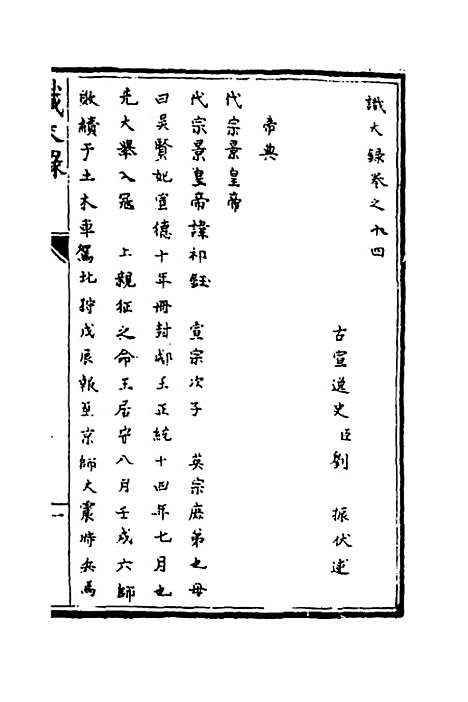 識大錄卷之十四
古宣逸史臣劉 振伏述
帝典
代宗景皇帝
代宗景皇帝諱祁鈺 宣宗次子 英宗庶弟也母
曰吳賢妃宣德十年冊封郕王正統十四年七月也
先大舉入寇 上親征之命王居守八月壬戌六師
敗績于土木車駕北狩戊辰報至京師大震時兵馬
識大錄
一